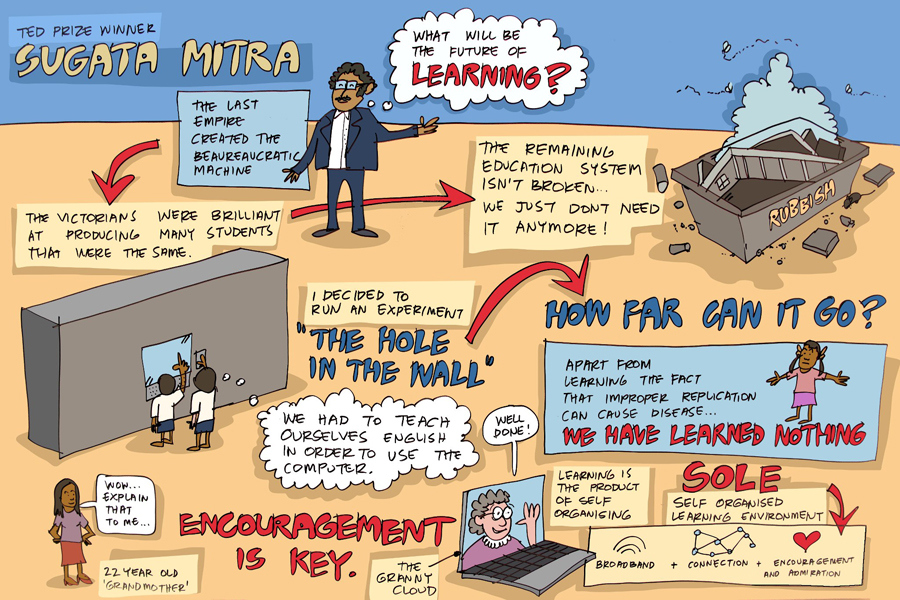 TED PRIZE WINNER
SUGATA MITRA
WHAT WILL BE
THE FUTURE OF
LEARNING?
THE LAST
EMPIRE
CREATED THE
BEAUREAUCRATIC
MACHINE
THE VICTORIANS WERE BRILLIANT
AT PRODUCING MANY STUDENTS
THAT WERE THE SAME.
THE REMAINING
EDUCATION SYSTEM
ISN'T BROKEN...
WE JUST DONT NEED
IT ANYMORE!
RUBBISH
I DECIDED TO
RUN AN EXPERIMENT
"THE HOLE
IN THE WALL"
WE HAD TO TEACH
OURSELVES ENGLISH
IN ORDER TO USE THE
COMPUTER.
HOW FAR CAN IT GO?
APART FROM
LEARNING THE FACT
THAT IMPROPER REPLICATION
CAN CAUSE DISEASE...
WE HAVE LEARNED NOTHING
WOW...
EXPLAIN
THAT
TO ME...
22 YEAR OLD
'GRANDMOTHER'
ENCOURAGEMENT
IS KEY.
WELL
DONE!
THE
GRANNY
CLOUD
LEARNING IS
THE PRODUCT
OF SELF
ORGANISING
SOLE
SELF ORGANISED
LEARNING ENVIRONMENT
BROADBAND + CONNECTION + ENCOURAGEMENT
AND ADMIRATION